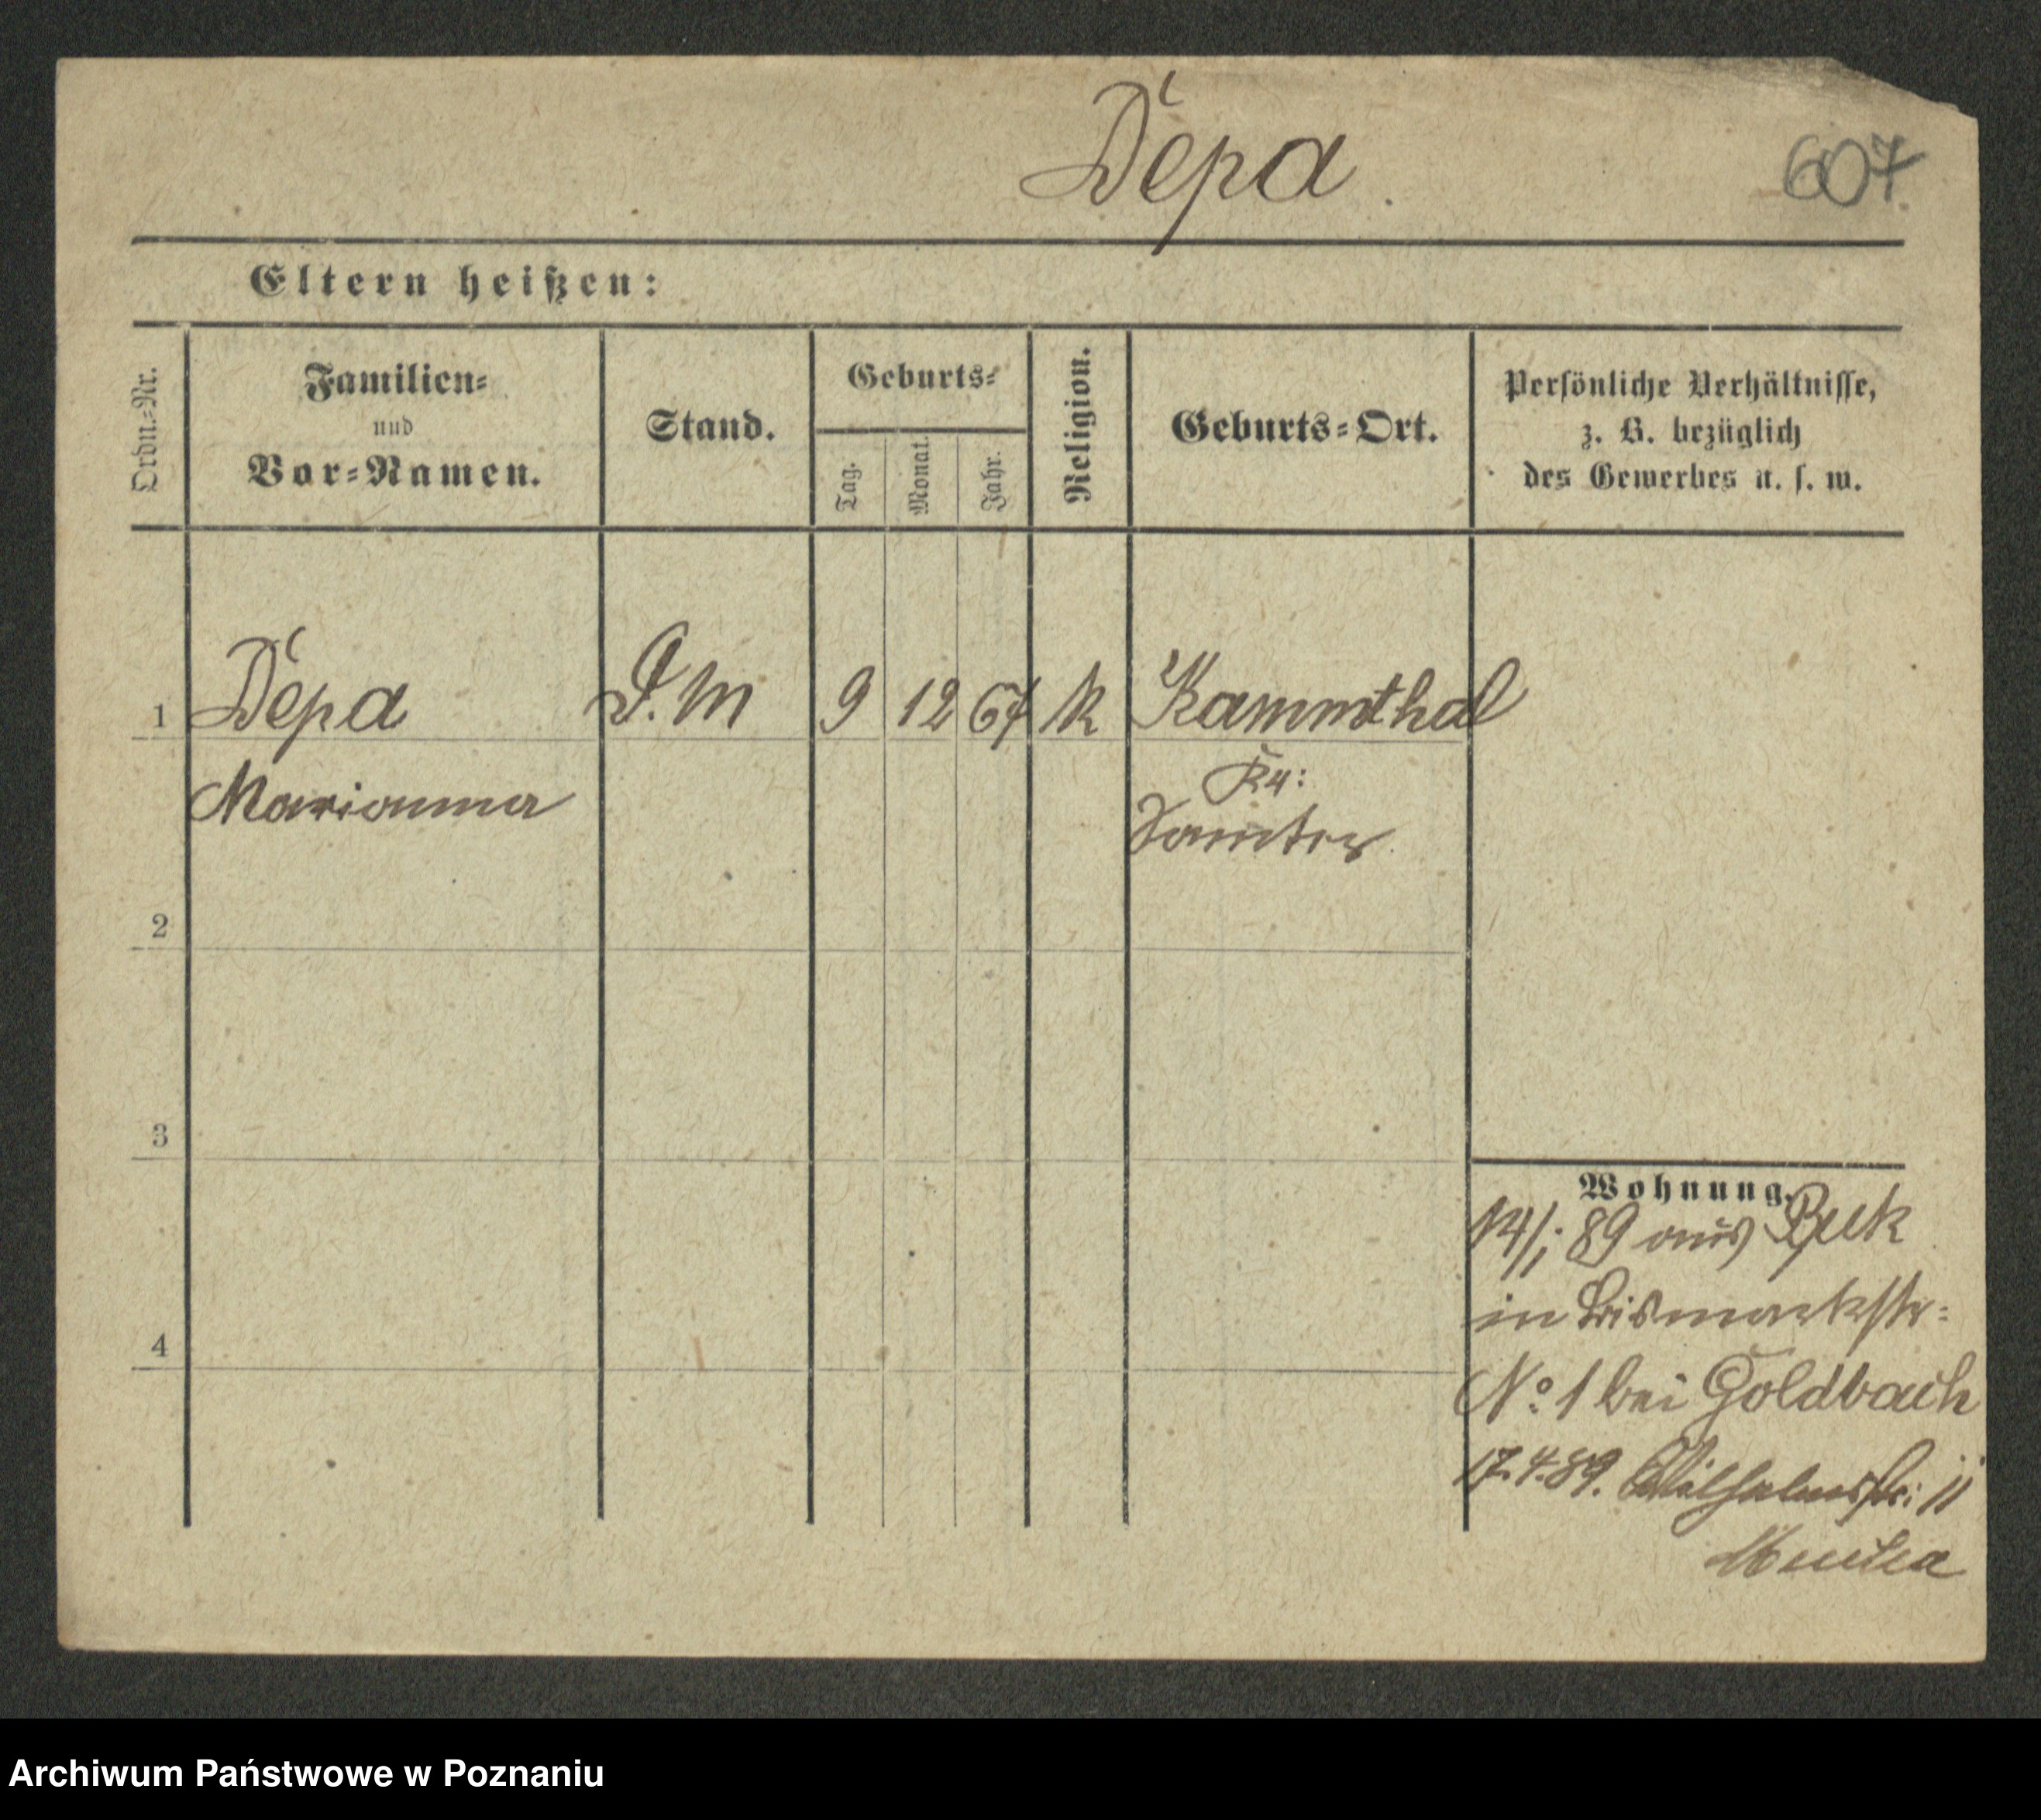 Depa
607
Eltern heißen:
Ordn.=Nr.
Familien=
und
Vor=Namen.
Stand.
Geburts=
Tag.
Monat.
Jahr.
Religion.
Geburts=Ort.
Persönliche Verhältnisse,
z. B. bezüglich
des Gewerbes u. s. w.
1 Depa D.M 9 12 67 k Kammthal
Marianna
Kr:
Samter
2
3
4
Wohnung.
14/1 89 aus Buk
in Bismarkstr=
No 1 bei Goldbach
17.4.89. Wilhelmstr: 11
Archiwum Państwowe w Poznaniu